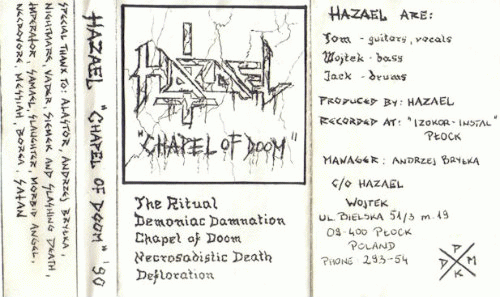 SPECIAL THANK TO: ALASTOR, ANDRZEJ BRYŁKA,
NIGHTMARE, VADER, SICKER AND SLASHING DEATH,
IMPERATOR, SAMAEL, SLAUGHTER, MORBID ANGEL,
NECROVORE, MESSIAH, BORGA, SATAN
HAZAEL "CHAPEL OF DOOM" '90
HAZAEL
"CHAPEL OF DOOM"
The Ritual
Demoniac Damnation
Chapel of Doom
Necrosadistic Death
Defloration
HAZAEL ARE:
Tom - guitars, vocals
Wojtek - bass
Jack - drums
PRODUCED BY: HAZAEL
RECORDED AT: "IZOKOR-INSTAL"
PŁOCK
MANAGER: ANDRZEJ BRYŁKA
C/O HAZAEL
WOJTEK
UL. BIELSKA 51/3 m. 19
09-400 PŁOCK
POLAND
PHONE: 293-54
P
D M
K